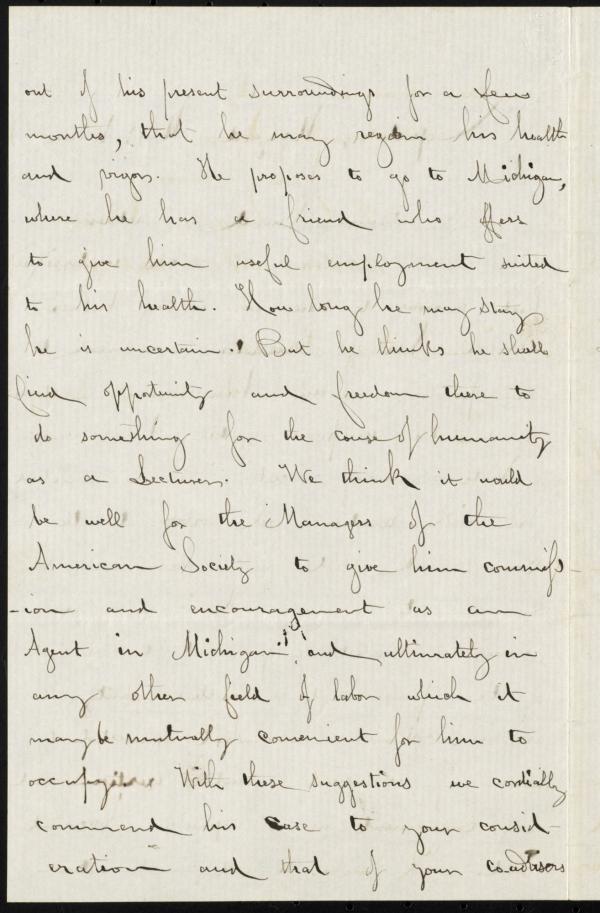 out of his present surroundings for a few
months, that he may regain his health
and vigor. He proposes to go to Michigan,
where he has a friend who offers
to give him useful employment suited
to his health. How long he may stay
he is uncertain. But he thinks he shall
find opportunity and freedom there to
do something for the cause of humanity
as a Lecturer. We think it would
be well for the Managers of the
American Society to give him commiss-
-ion and encouragement as an
Agent in Michigan, and ultimately in
any other field of labor which it
may be mutually convenient for him to
occupy. With these suggestions we cordially
commend his case to your consid-
eration and that of your co-advisors